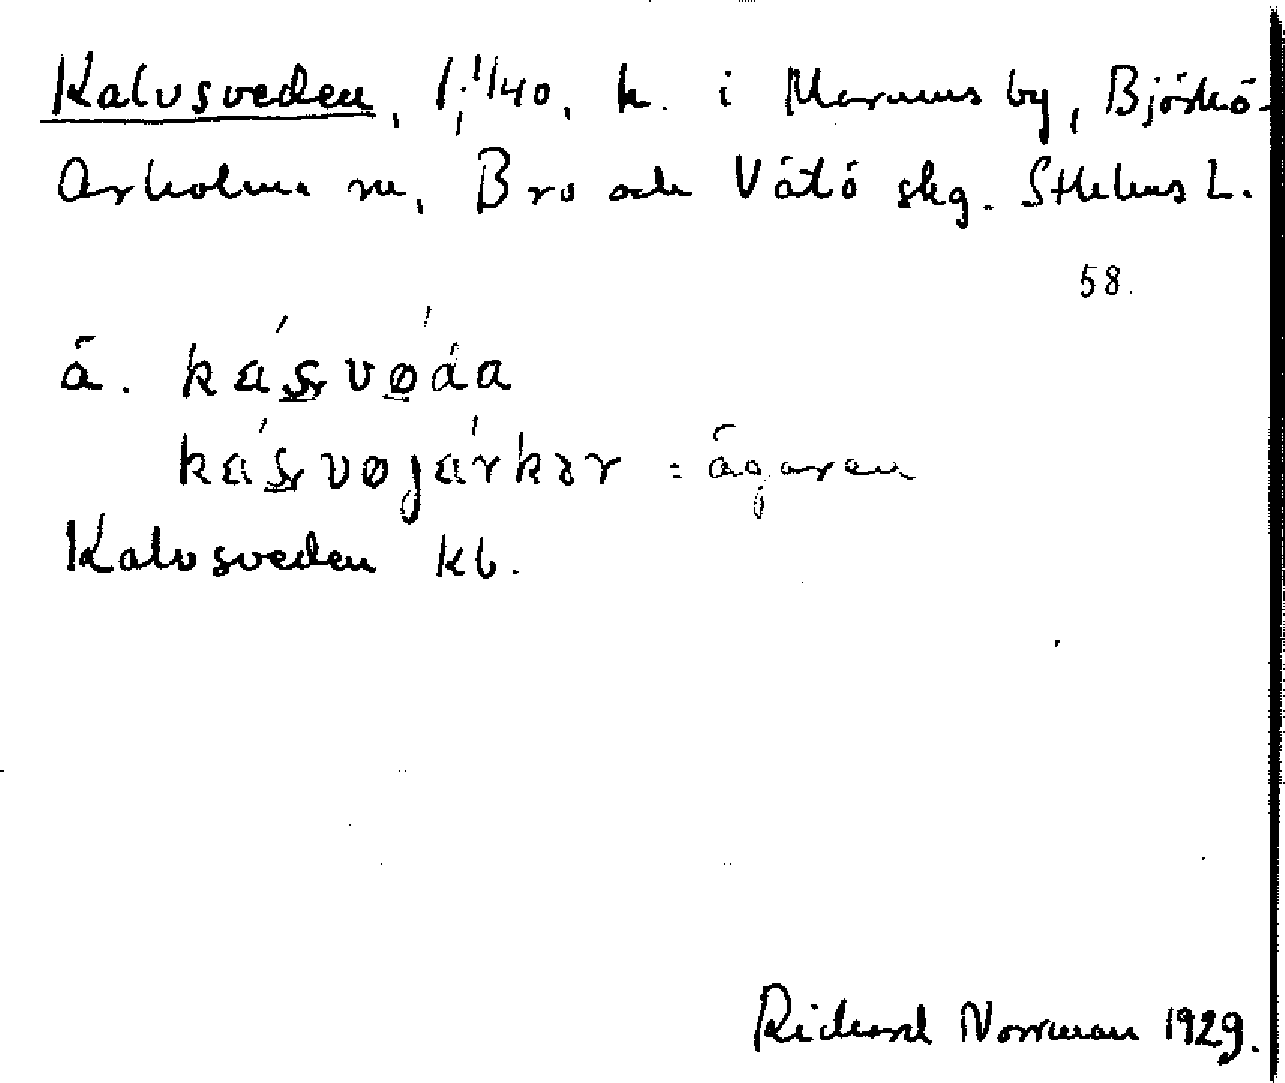 Kalvsveden, 1;1/40, h. i Marums by, Björkö-
Arholma sn, Bro och Vätö skg. Sthlms L.
58.
å. kásvø̀da
kásvøjárkər = ägaren
Kalvsveden kb.
Richard Norrman 1929.